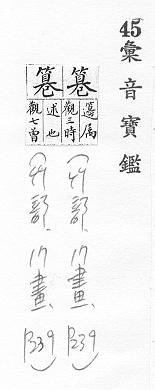 45彙音寶鑑
篹
籩屬
觀三時
(竹部, 17畫, P239)
篹
述也
觀七曾
(竹部, 17畫, P339)